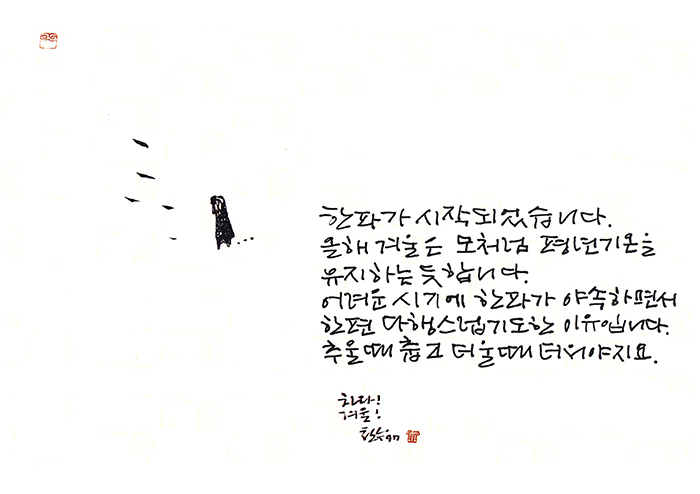 한파가 시작되었습니다.
올해 겨울은 모처럼 평년기온을
유지하는 듯 합니다.
어려운 시기에 한파가 야속하면서
한편 다행스럽기도한 이유입니다.
추울때 춥고 더울때 더워야지요.
차다!
겨울!